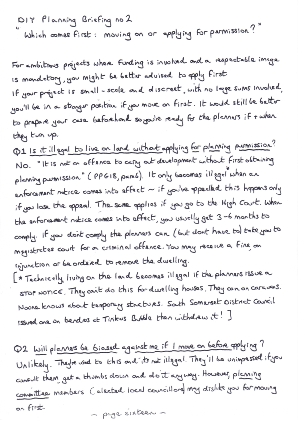 DIY Planning Briefing no 2
"Which comes first: moving on or applying for permission?"
For ambitious projects where funding is involved and a respectable image
is mandatory, you might be better advised to apply first.
If your project is small-scale and discreet, with no large sums involved,
you'll be in a stronger position if you move on first. It would still be better
to prepare your case beforehand so you're ready for the planners if & when
they turn up.
Q1 Is it illegal to live on land without applying for planning permission?
No. "It is not an offence to carry out development without first obtaining
planning permission" (PPG18, para 6). It only becomes illegal when an
enforcement notice comes into effect ~ if you've appealled this happens only
if you lose the appeal. The same applies if you go to the High Court. When
the enforcement notice comes into effect, you usually get 3-6 months to
comply. If you don't comply the planners can (but don't have to) take you to
magistrates court for a criminal offence. You may receive a fine or
injunction or be ordered to remove the dwelling.
[* Technically, living on the land becomes illegal if the planners issue a
STOP NOTICE. They can't do this for dwelling houses, They can on caravans.
No one knows about temporary structures. South Somerset District Council
issued one on benders at Tinkers Bubble then withdrew it!]
Q2 Will planners be biased against me if I move on before applying?
Unlikely. They're used to this and it's not illegal. They'll be unimpressed if you
consult them, get a thumbs down and do it anyway. However, planning
committee members (elected local councillors) may dislike you for moving
on first.
~ page sixteen ~